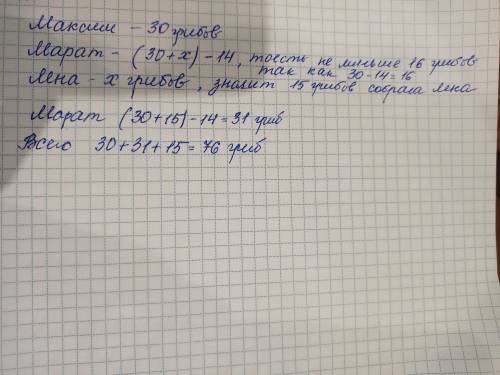 Максим – 30 грибов
Марат – (30+x) – 14, тоесть не меньше 16 грибов
так как 30-14=16
Лена – x грибов, значит 15 грибов собрала Лена
Марат (30+15)-14=31 гриб
Всего 30+31+15=76 гриб